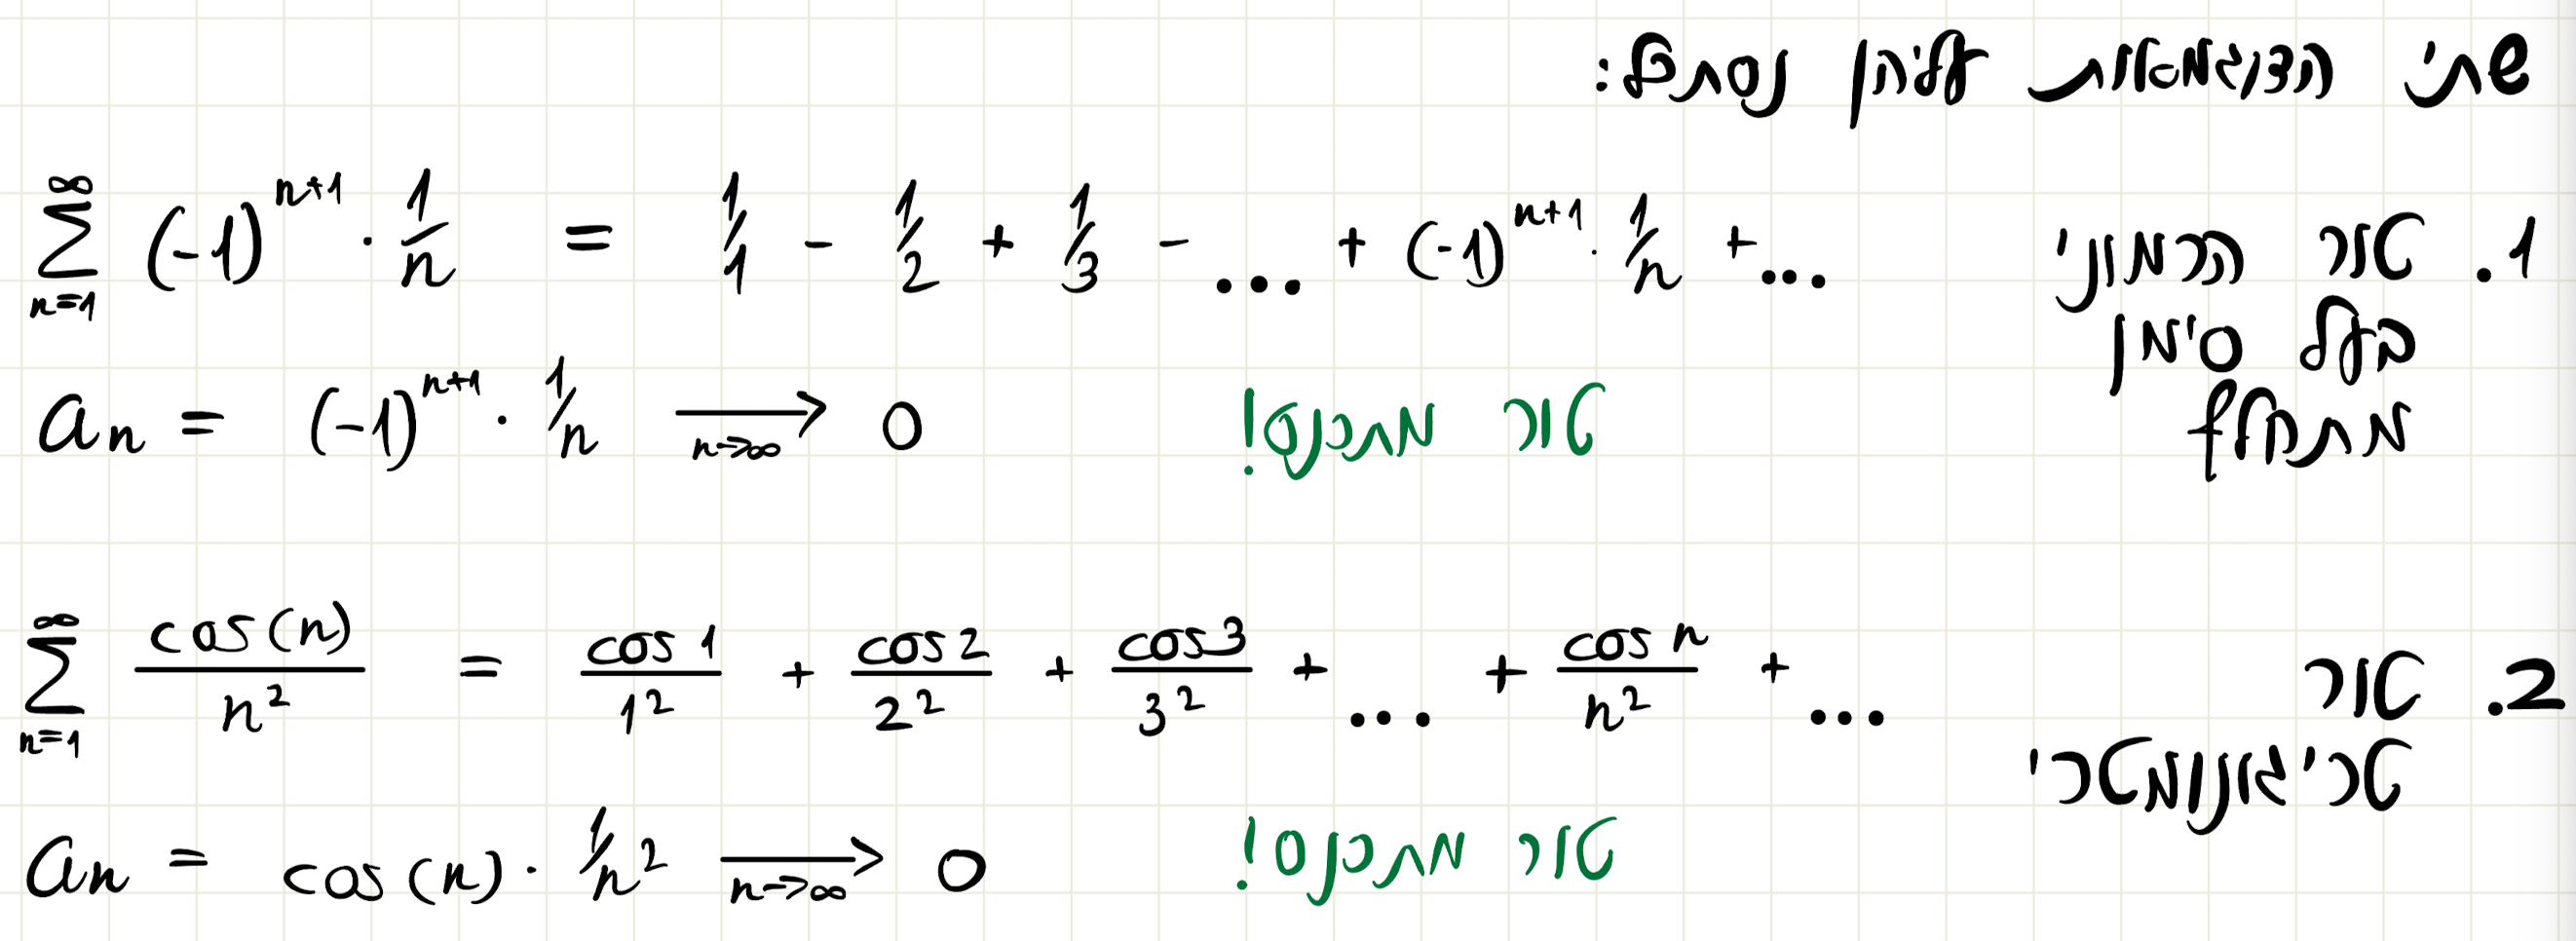 שתי הדוגמאות עליהן נסתכל:
1. טור הרמוני בעל סימן מתחלף
∑_{n=1}^{∞} (-1)^{n+1} · 1/n = 1/1 - 1/2 + 1/3 - ... + (-1)^{n+1} · 1/n + ...
a_n = (-1)^{n+1} · 1/n ⟶_{n→∞} 0
טור מתכנס!
2. טור טריגונומטרי
∑_{n=1}^{∞} cos(n)/n² = cos1/1² + cos2/2² + cos3/3² + ... + cos n/n² + ...
a_n = cos(n) · 1/n² ⟶_{n→∞} 0
טור מתכנס!